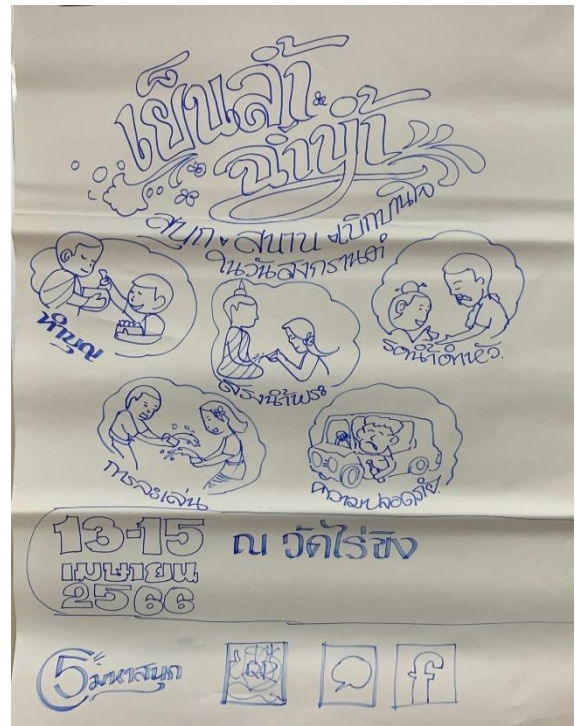 เย็นล้ำ
ฉ่ำน้ำ
สนุก สนาน เบิกบานใจ
ในวันสงกรานต์
ทำบุญ
สรงน้ำพระ
รดน้ำดำหัว
การละเล่น
ความปลอดภัย
13-15
เมษายน
2566
ณ วัดไร่ขิง
5 มหาสนุก
f